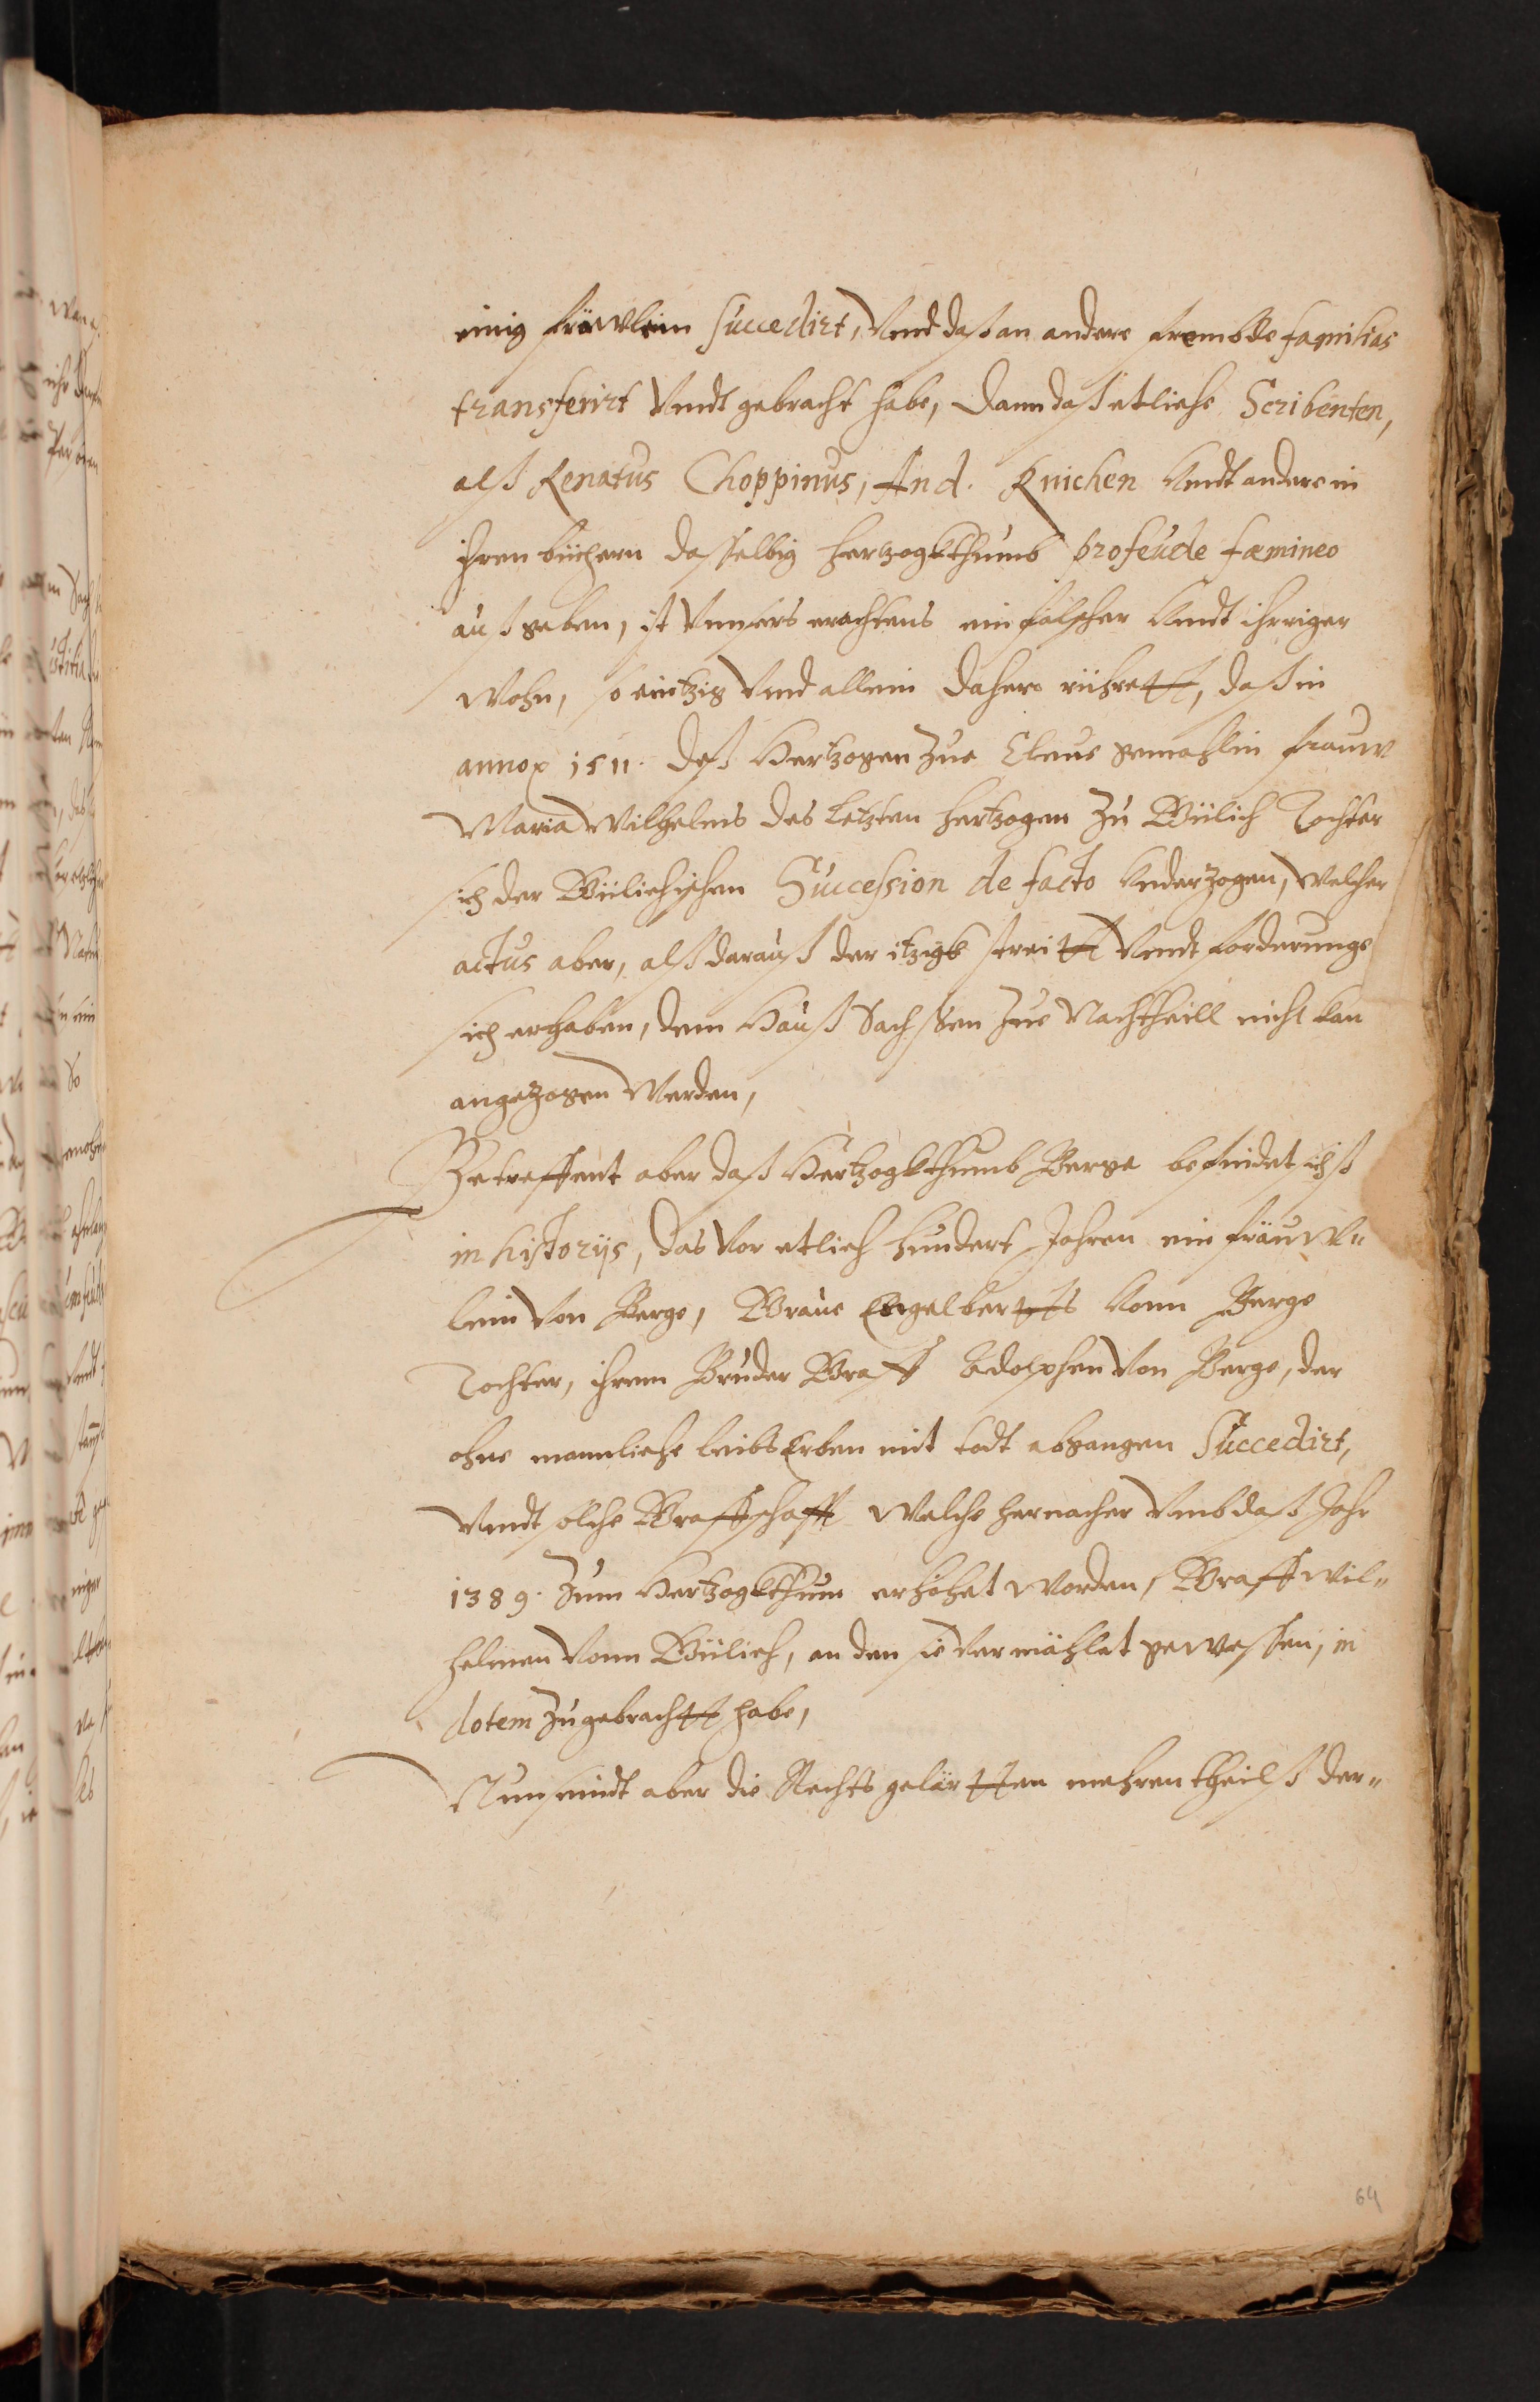 einig fräwlein succedirt, Vnd daß an andere frembde familias
transferirt Vndt gebracht habe, dann daß etliche Scribenten,
alß Renatus Choppinus, And. Knichen Vndt andere in
ihren büchern dasselbig Hertzogkthumb pro feude fæmineo
außgeben, ist Vnsers erachtens ein falscher Vndt ihrriger
wohn, so eintzig Vnd allein dahero rühret, daß in
anno 1511. deß Hertzogen zue Cleue gemahlin frauw
Maria Wilhelms des letzten Hertzogen zu Gülich Tochter
sich der Gülichischen Succession de facto Vnderzogen, Welcher
actus aber, alß darauß der itzigk streitt Vndt forderunge
sich erhaben, dem Hauß Sachssen zue Nachtheill nicht kan
angezogen Werden,
Betreffent aber daß Hertzogkthumb Berge befindet sichß
in historijs, das Vor etlich hundert Jahren ein fräuw-
lein Von Berge, Graue Engelbertts Vonn Berge
Tochter, ihrem Bruder Graff Adolphen Von Berge, der
ohne mannliche leibs Erben mit todt abgangen Succedirt,
Vndt solche Graffschafft Welche hernacher Vmb daß Jahr
1389. Zum Hertzogkthum erhöhet Worden, Graff Wil-
helmen Vonn Gülich, an den sie Vermählet gewessen, in
dotem zugebrachtt habe,
Nun seindt aber die Rechts gelärtten mehrentheilß der-
64